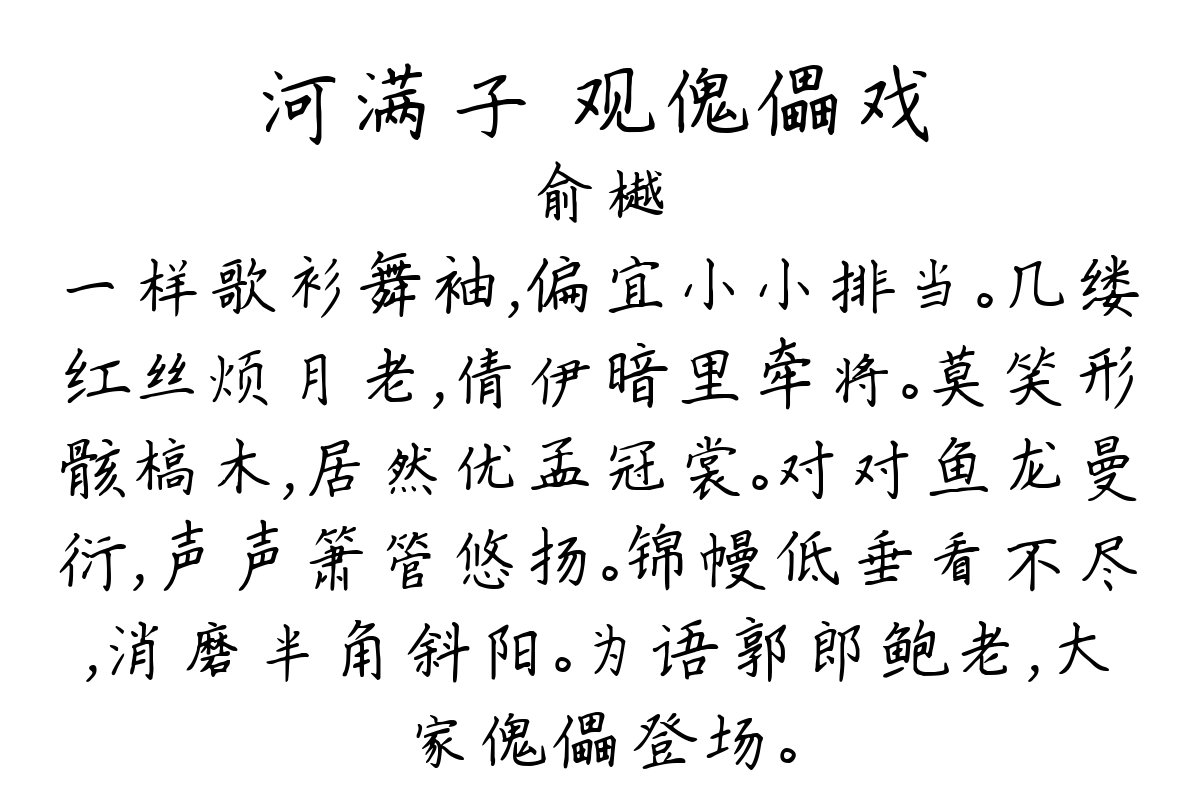 河满子 观傀儡戏
俞樾
一样歌衫舞袖,偏宜小小排当。几缕
红丝烦月老,倩伊暗里牵将。莫笑形
骸槁木,居然优孟冠裳。对对鱼龙曼
衍,声声箫管悠扬。锦幔低垂看不尽
,消磨半角斜阳。为语郭郎鲍老,大
家傀儡登场。